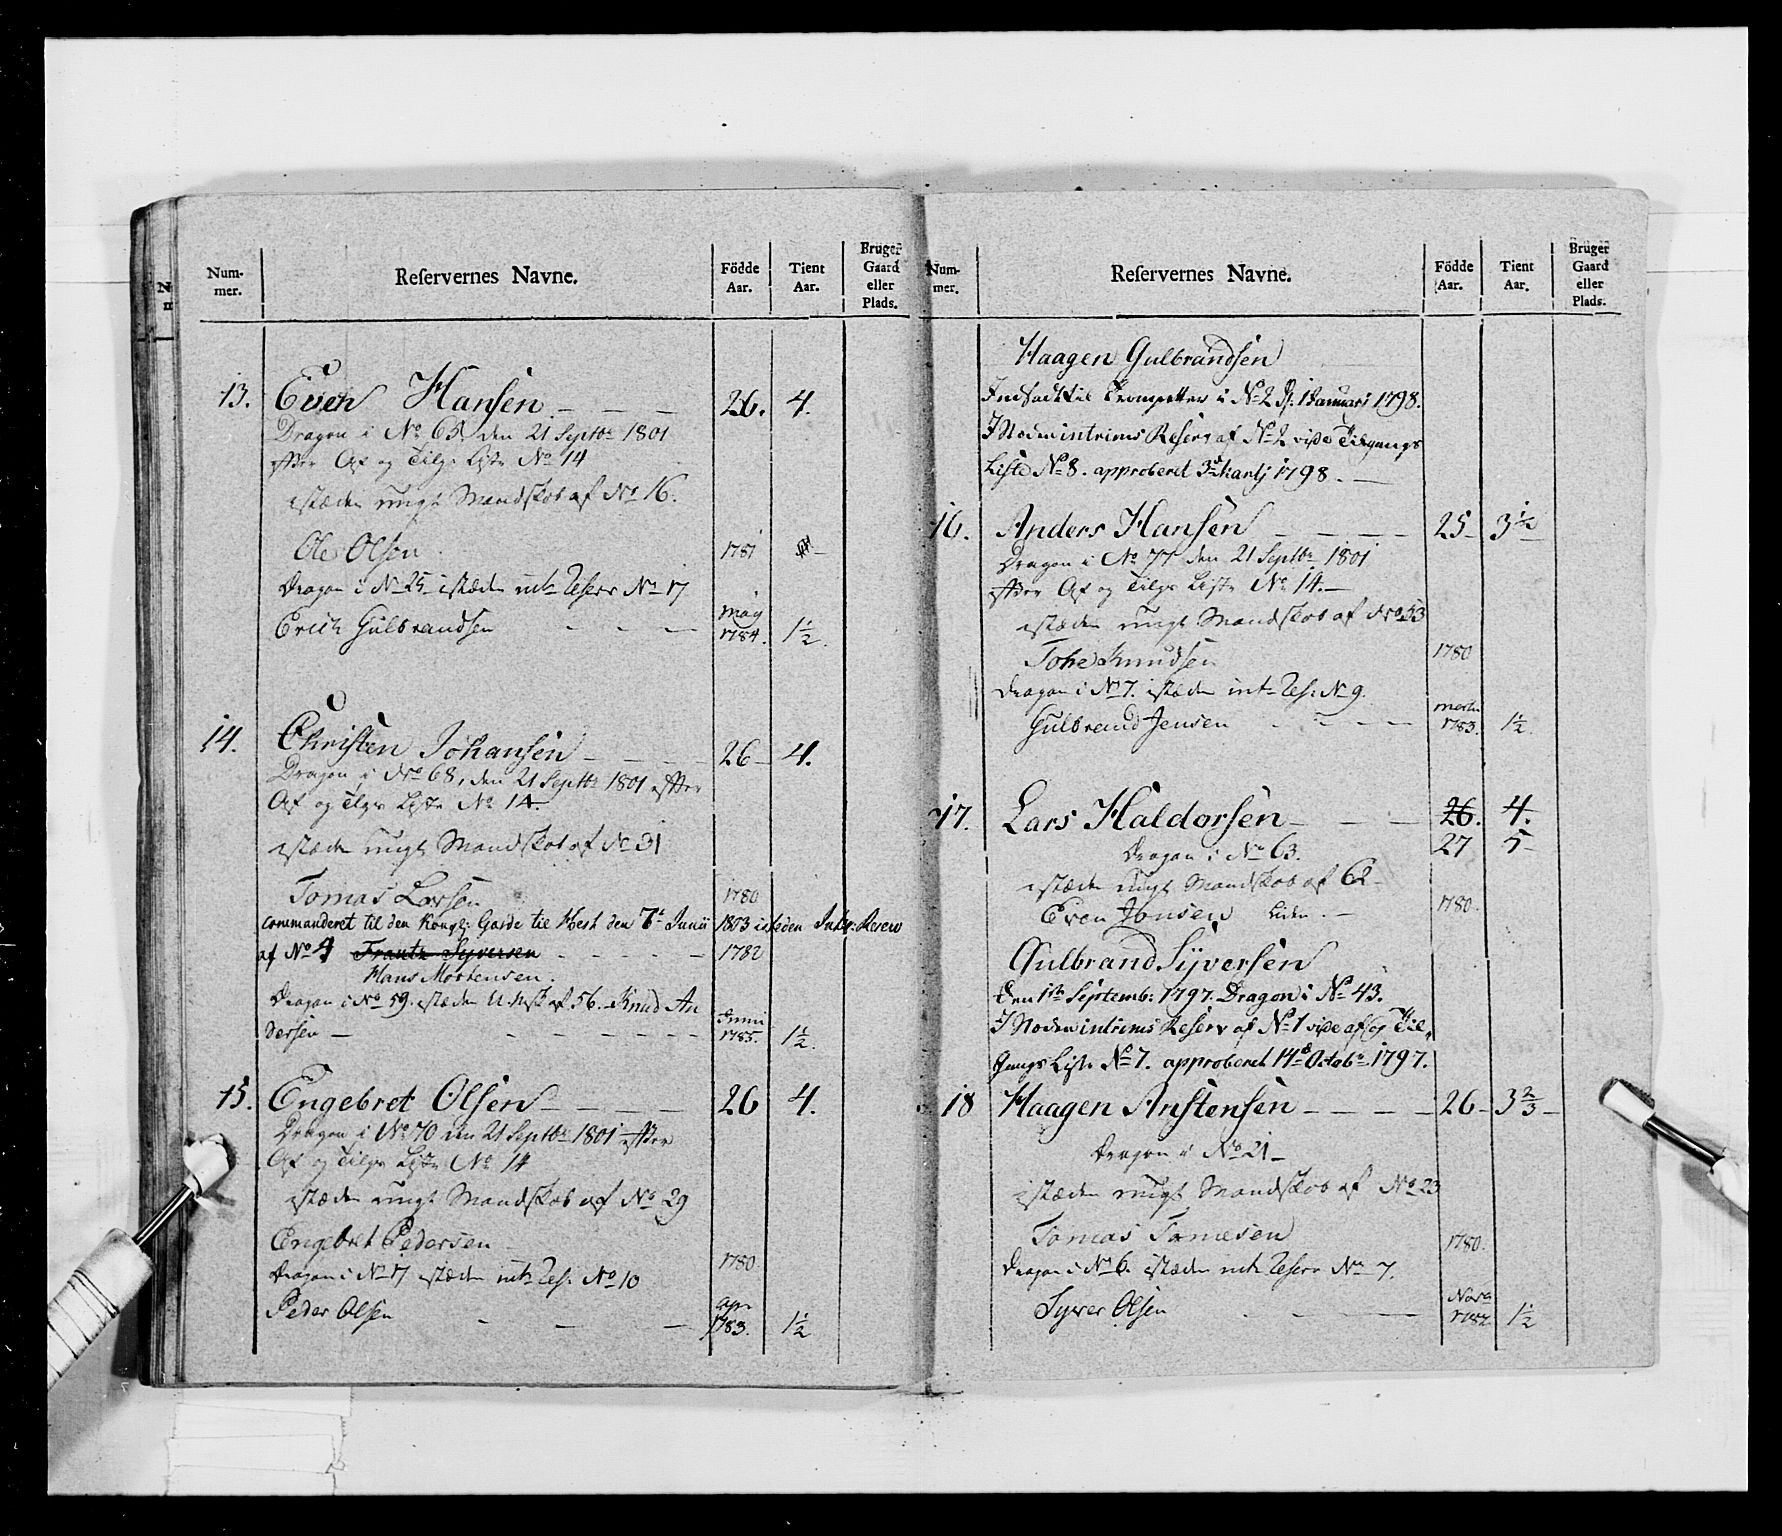 Num-
mer.
Reservernes Navne.
Födde
Aar.
Tient
Aar.
Bruger
Gaard
eller
Plads.
13. Even Hansen 26. 4.
Dragon i No 65, den 21 Septbr 1801
efter Af og Tilgs Liste No 14
istæden ungt Mandskab af No 16.
Ole Olsen 1781
Dragon i No 25 istæden int: Reserv No 17
May
Erich Gulbrandsen 1784. 1½.
14. Christen Johansen 26 4.
Dragon i No 68, den 21 Septbr 1801 efter
Af og Tilgs Liste No 14.
istæden ungt Mandskab af No 31
Tomas Larsen 1780
Commanderet til den Kongl: Garde til Hest den 7de Junii 1803 isteden Intr: Reserv
af No 4 Frantz Syversen 1782
Hans Mortensen.
Dragon i No 59. istæden U. Msk af 56. Knud An
dersen Junii 1785. 1½.
15. Engebret Olsen 26 4.
Dragon i No 70 den 21 Septbr 1801 efter
Af og Tilgs Liste No 14
istæden ungt Mandskab af No 29
Engebret Pedersen 1780
Dragon i No 17 istæden int: Res: No 10
Peder Olsen apr 1783. 1½
Num-
mer.
Reservernes Navne.
Födde
Aar.
Tient
Aar.
Bruger
Gaard
eller
Plads.
Haagen Gulbrandsen
Indsadt til Trompetter i No 2 D. 1 Januari 1798.
I Stæden intrims Reserv af No 2 vise Tilgangs
Liste No 8. approberet 3de Martj 1798.
16. Anders Hansen 25 3½
Dragon i No 77 den 21 Septbr 1801
efter Af og Tilgs Liste No 14.
istæden ungt Mandskab af No 53
Tohe Knudsen 1780
Dragon i No 7. istæden int: Res: No 9.
Gulbrand Jensen 1783. 1½.
17. Lars Haldorsen 26. 4.
27 5
Dragon i No 63.
istæden ungt Mandskab af 62
Even Jonsen Liden. 1780.
Gulbrand Syversen
den 1ste Septemb: 1797. Dragon i No 43.
I Stæden intrims Reserv af No 1 vise af og Til-
gangs Liste No 7. approberet 14de Octobr 1797.
18 Haagen Anstensen 26 3⅔
Dragon i No 21
istæden ungt Mandskab af No 23
Tomas Tomesen 1780.
Dragon i No 6. istæden int: Reserv No 7.
Syver Olsen Novb 1782 1½